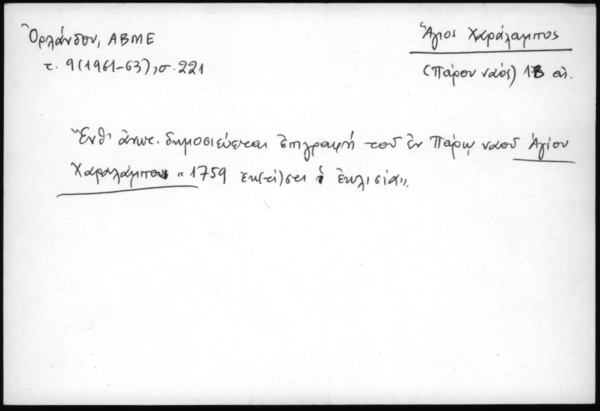 Ὀρλάνδου, ΑΒΜΕ
τ. 9 (1961-63), σ. 221
Ἅγιος Χαράλαμπος
(Πάρου ναός) 18 αι.
Ἔνθ' ἀνωτ. δημοσιεύεται ἐπιγραφή τοῦ ἐν Πάρῳ ναοῦ Ἁγίου
Χαραλάμπου « 1759 ἐκ(τί)σται ἱ ἐκλισία».